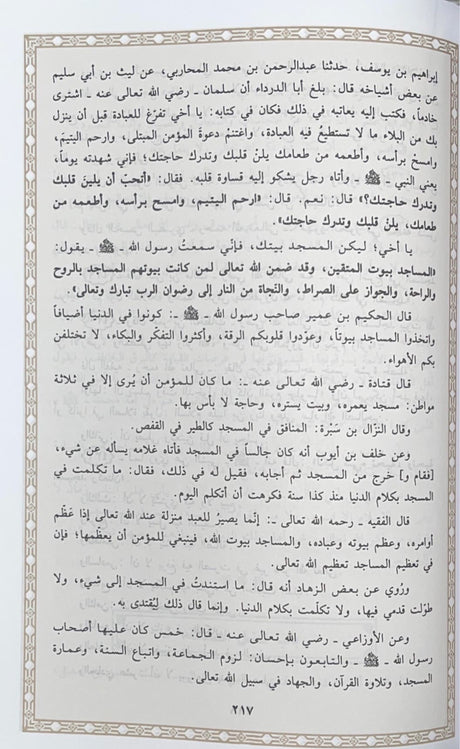 إبراهيم بن يوسف، حدثنا عبدالرحمن بن محمد المحاربي، عن ليث بن أبي سليم
عن بعض أشياخه قال: بلغ أبا الدرداء أن سلمان ـ رضي الله تعالى عنه ـ اشترى
خادماً، فكتب إليه يعاتبه في ذلك فكان في كتابه: يا أخي تفرّغ للعبادة قبل أن ينزل
بك من البلاء ما لا تستطيع فيه العبادة، واغتنمْ دعوةَ المؤمن المبتلى، وارحم اليتيمَ،
وامسحْ برأسه، وأطعمه من طعامك يلنْ قلبك وتدرك حاجتك؛ فإني شهدته يوماً،
يعني النبي ـ ﷺ ـ وأتاه رجل يشكو إليه قساوة قلبه. فقال: «أتحبّ أن يلينَ قلبك
وتدرك حاجتك؟» قال: نعم. قال: «ارحم اليتيم، وامسح برأسه، وأطعمه من
طعامك، يلنْ قلبك وتدرك حاجتك».
يا أخي؛ ليكن المسجد بيتك، فإنّي سمعتُ رسول الله ـ ﷺ ـ يقول:
«المساجد بيوت المتقين، وقد ضمن الله تعالى لمن كانت بيوتهم المساجد بالروح
والراحة، والجواز على الصراط، والنّجاة من النار إلى رضوان الرب تبارك وتعالى».
قال الحكيم بن عمير صاحب رسول الله ـ ﷺ ـ: كونوا في الدنيا أضيافاً
واتخذوا المساجد بيوتاً، وعوّدوا قلوبكم الرقة، وأكثروا التفكّر والبكاء، لا تختلفن
بكم الأهواء.
قال قتادة ـ رضي الله تعالى عنه ـ: ما كان للمؤمن أن يُرى إلا في ثلاثة
مواطن: مسجد يعمره، وبيت يستره، وحاجة لا بأس بها.
وقال النزّال بن سَبْرة: المنافق في المسجد كالطير في القفص.
وعن خلف بن أيوب أنه كان جالساً في المسجد فأتاه غلامه يسأله عن شيء،
[فقام و] خرج من المسجد ثم أجابه، فقيل له في ذلك، فقال: ما تكلمت في
المسجد بكلام الدنيا منذ كذا سنة فكرهت أن أتكلم اليوم.
قال الفقيه ـ رحمه الله تعالى ـ: إنّما يصيرُ للعبد منزلة عند الله تعالى إذا عَظّم
أوامره، وعظم بيوته وعباده، والمساجد بيوت الله، فينبغي للمؤمن أن يعظّمها؛ فإن
في تعظيم المساجد تعظيم الله تعالى.
ورُوي عن بعض الزهاد أنه قال: ما استندتُ في المسجد إلى شيء، ولا
طوّلت قدمي فيها، ولا تكلّمت بكلام الدنيا. وإنما قال ذلك ليُقتدى به.
وعن الأوزاعي ـ رضي الله تعالى عنه ـ قال: خمس كان عليها أصحاب
رسول الله ـ ﷺ ـ والتابعون بإحسان: لزوم الجماعة، واتباع السنة، وعمارة
المسجد، وتلاوة القرآن، والجهاد في سبيل الله تعالى.
٢١٧